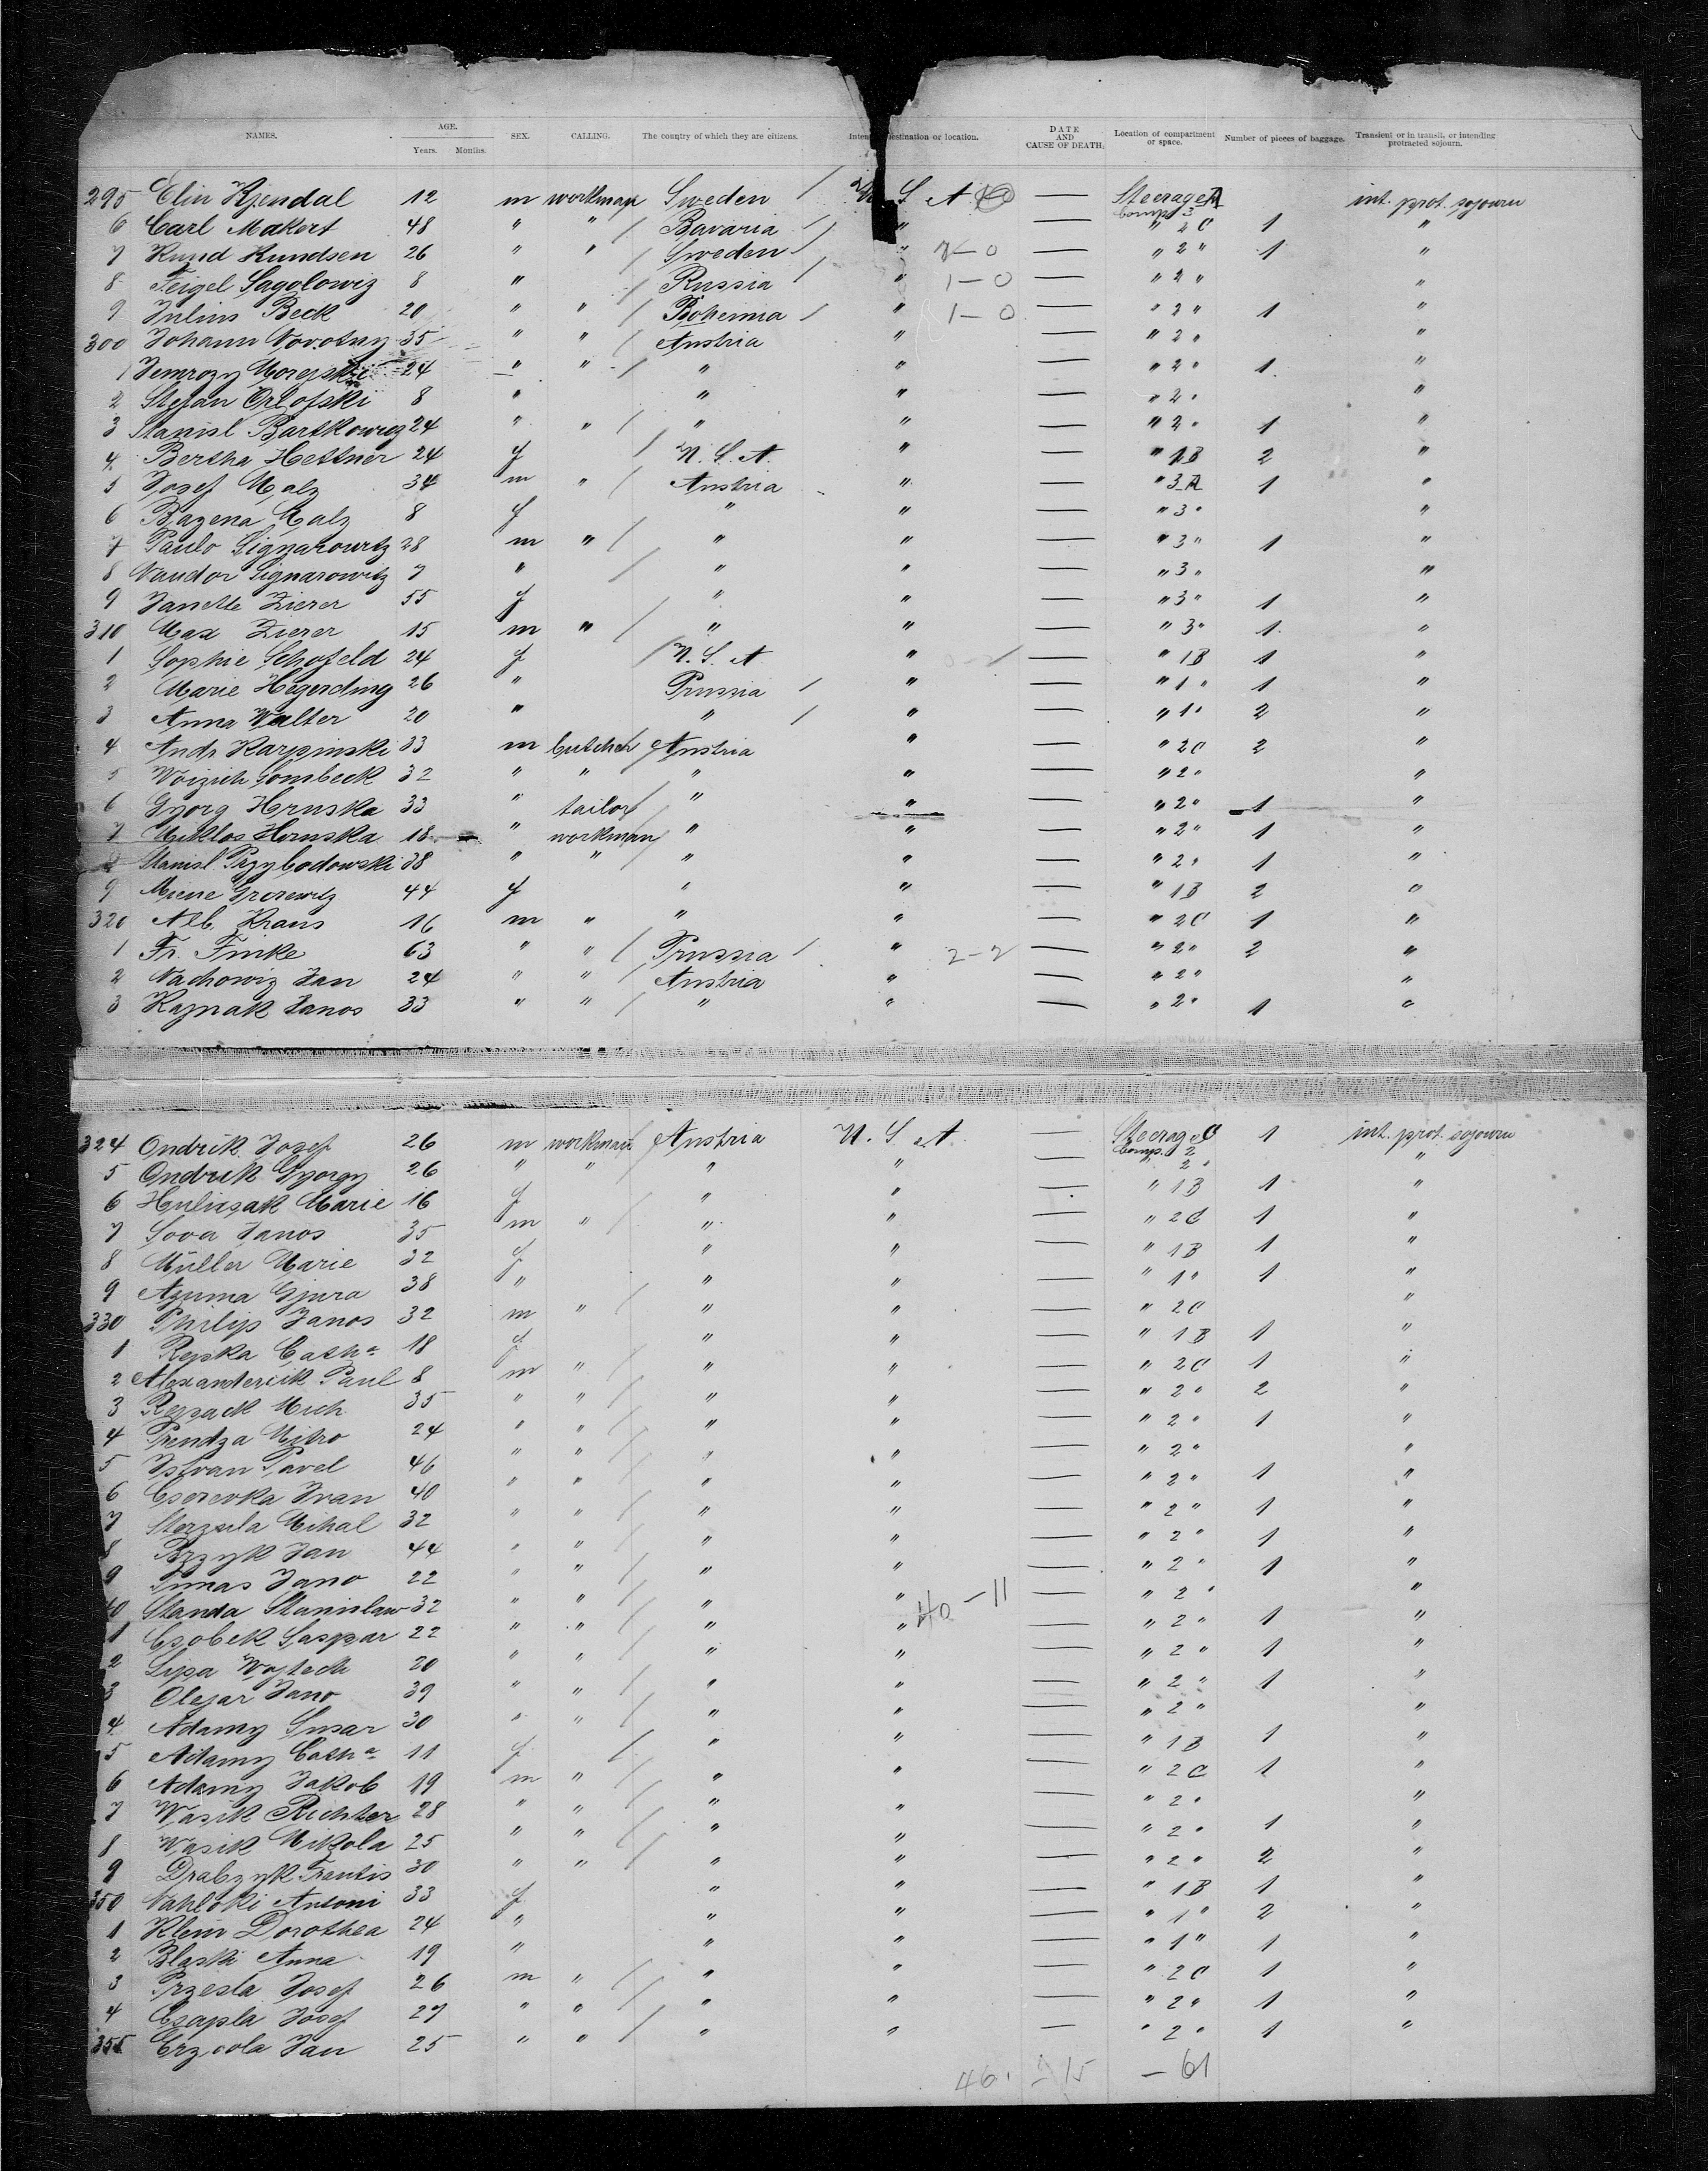 NAMES. AGE. Years. Months. SEX. CALLING. The country of which they are citizens. Inten estination or location. DATE AND CAUSE OF DEATH. Location of compartment or space. Number of pieces of baggage. Transient or in transit, or intending protracted sojourn.
295 Elin Kjendal 12 m workman Sweden / U S A — Steerage A int. prot. sojourn
6 Carl Makert 48 " " / Bavaria / " — Comp. 3 " 2 C 1 "
7 Knud Knudsen 26 " " / Sweden / " — " 2 " 1 "
8 Feigel Sagolowiz 8 " / Russia / " 1-0 — " 2 " "
9 Julius Beck 20 " " / Bohemia / " 1-0 — " 2 " 1 "
300 Johann Novotny 35 " " / Austria " — " 2 " "
1 24 " " / " " — " 2 " 1 "
2 Stefan Orlofski 8 " " " — " 2 " "
3 Stanisl Bartkowicz 24 " " / " " — " 2 " 1 "
4 Bertha Hettner 24 f / U. S. A. " — " 1 B 2 "
5 Josef Malz 34 m " / Austria " — " 3 A 1 "
6 Bazena Malz 8 f " " — " 3 " "
7 Paulo Signarowitz 28 m " / " " — " 3 " 1 "
8 Nandor Signarowitz 7 " / " " — " 3 " "
9 Janette Zierer 55 f " " — " 3 " 1 "
310 Max Zierer 15 m " / " " — " 3 " 1 "
1 Sophie Schofeld 24 f / U. S. A " — " 1 B 1 "
2 Marie Hegerding 26 " Prussia / " — " 1 " 1 "
3 Anna Walter 20 " " / " — " 1 " 2 "
4 Andr Karpinski 33 m butcher / Austria " — " 2 C 2 "
5 Woizich Gombeck 32 " " " " — " 2 " "
6 Gyorg Hruska 33 " tailor / " " — " 2 " 1 "
7 Miklos Hruska 18 " workman / " " — " 2 " 1 "
8 Stanisl. Przybodowski 38 " " / " " — " 2 " 1 "
9 44 f " " — " 1 B 2 "
320 Alb. Kraus 16 m " " " — " 2 C 1 "
1 Fr. Finke 63 " " / Prussia / " 2-2 — " 2 " 2 "
2 Nachowiz Jan 24 " " / Austria " — " 2 " "
3 Kaznak Janos 33 " " / " " — " 2 " 1 "
324 Ondrik Josef 26 m workman / Austria U. S. A. — Steerage C 1 int. prot. sojourn
5 Ondrik Gyorgy 26 " " / " " — Comp. 2 " 2 " "
6 Hulicsak Marie 16 f " " — " 1 B 1 "
7 Sova Janos 35 m " / " " — " 2 C 1 "
8 Müller Marie 32 f " " — " 1 B 1 "
9 Azuma Gjura 38 " " " — " 1 " 1 "
330 Philip Janos 32 m " / " " — " 2 C "
1 Repka Cath a 18 f " " — " 1 B 1 "
2 Alexandercik Paul 8 m " / " " — " 2 C 1 "
3 Repack Mich 35 " " / " " — " 2 " 2 "
4 Prendza Mitro 24 " " / " " — " 2 " 1 "
5 Istvan Pavel 46 " " / " " — " 2 " "
6 Cserevka Ivan 40 " " / " " — " 2 " 1 "
7 Mihal 32 " " / " " — " 2 " 1 "
8 Jan 44 " " / " " — " 2 " 1 "
9 Jano 22 " " / " " — " 2 " 1 "
40 Standa Stanislaw 32 " " / " " 40 - 11 — " 2 " "
1 Czobek Gaspar 22 " " / " " — " 2 " 1 "
2 Lipa Wojtech 20 " " / " " — " 2 " 1 "
3 Olejar Jano 39 " " / " " — " 2 " 1 "
4 Adamy Susar 30 " " / " " — " 2 " "
5 Adamy Cath a 11 f / " " — " 1 B 1 "
6 Adamy Jakob 19 m " / " " — " 2 C 1 "
7 Wasik Richter 28 " " / " " — " 2 " "
8 Wasik Mikola 25 " " / " " — " 2 " 1 "
9 Drabzyk Frantis 30 " " / " " — " 2 " 2 "
350 Antoni 33 f " " — " 1 B 1 "
1 Klein Dorothea 24 " " " — " 1 " 2 "
2 Blaski Anna 19 " " " — " 1 " 1 "
3 Przesla Josef 26 m " / " " — " 2 C 1 "
4 Czapla Josef 27 " " / " " — " 2 " 1 "
355 Jan 25 " " / " " — " 2 " 1 "
46. 15 — 61